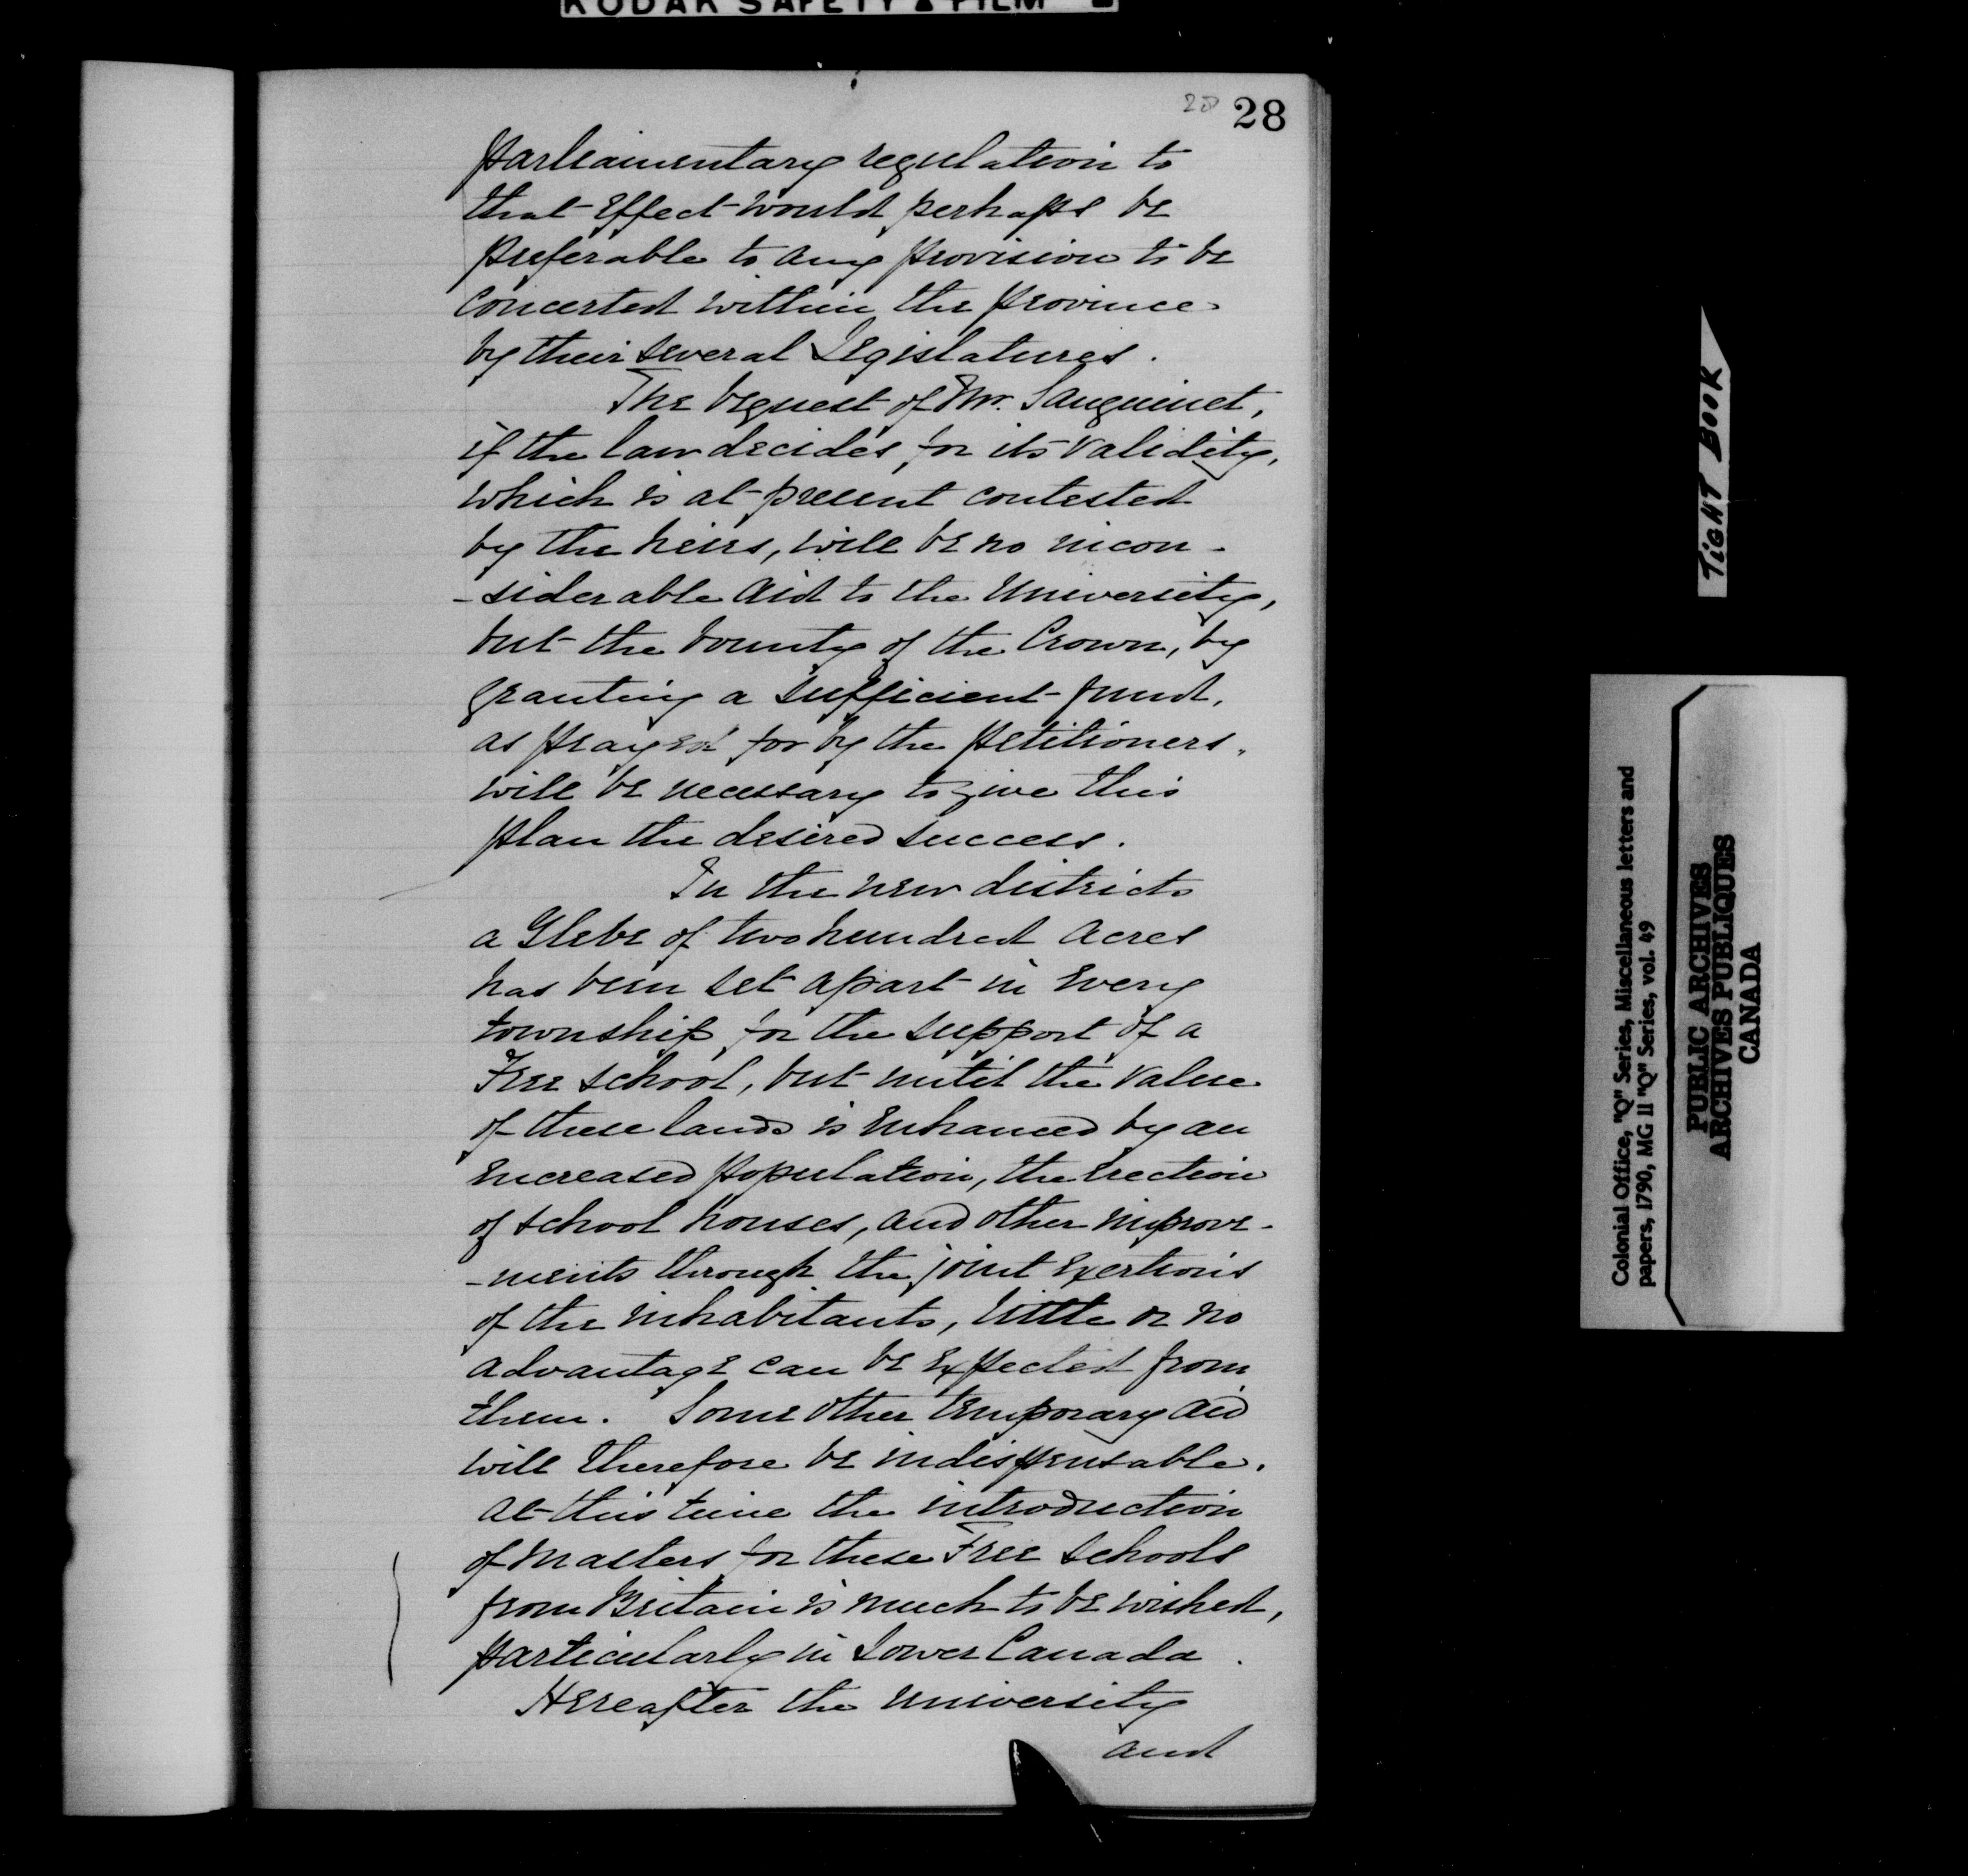 KODAK SAFETY FILM
28
28
Parliamentary regulation to
that effect would perhaps be
preferable to any provision to be
concerted within the province
by their several Legislatures.
The bequest of Mr. Sanguinet,
if the law decides for its validity,
which is at present contested
by the heirs, will be no incon-
-siderable aid to the University,
but the bounty of the Crown, by
granting a sufficient fund,
as prayed for by the Petitioners,
will be necessary to give this
plan the desired success.
In the new districts
a Glebe of two hundred acres
has been set apart in every
township for the support of a
Free school, but until the value
of these lands is enhanced by an
increased population, the erection
of school houses, and other improve-
-ments through the joint exertions
of the inhabitants, little or no
advantage can be expected from
them. Some other temporary aid
will therefore be indispensable.
At this time the introduction
of masters for these Free schools
from Britain is much to be wished,
particularly in Lower Canada.
Hereafter the University
and
TIGHT BOOK
Colonial Office, "Q" Series, Miscellaneous letters and
papers, 1790, MG 11 "Q" Series, vol. 49
PUBLIC ARCHIVES
ARCHIVES PUBLIQUES
CANADA